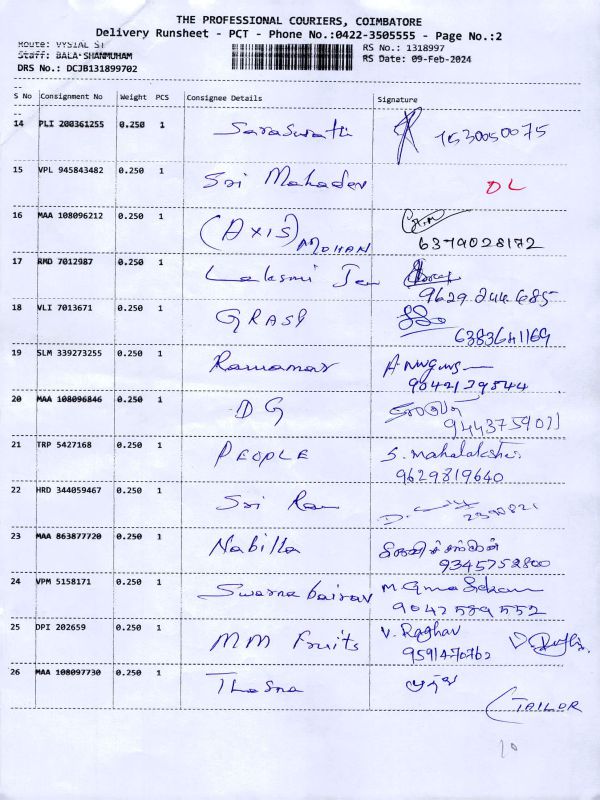 THE PROFESSIONAL COURIERS, COIMBATORE
Delivery Runsheet - PCT - Phone No.:0422-3505555 - Page No.:2
Route: VYSIAL ST RS No.: 1318997
Staff: BALA-SHANMUHAM RS Date: 09-Feb-2024
DRS No.: DCJB131899702
S No Consignment No Weight PCS Consignee Details Signature
14 PLI 200361255 0.250 1 Saraswathi 1630050075
15 VPL 945843482 0.250 1 Sri Mahadev DL
16 MAA 108096212 0.250 1 (Axis) MOHAN
6379028172
17 RMD 7012987 0.250 1 Laksmi Jew
9629244685
18 VLI 7013671 0.250 1 GRASP
6383641169
19 SLM 339273255 0.250 1 Ramamar
9042129544
20 MAA 108096846 0.250 1 DG
9443759071
21 TRP 5427168 0.250 1 PEOPLE S. Mahalakshmi
9629819640
22 HRD 344059467 0.250 1 Sri Ram
23 MAA 863877720 0.250 1 Nabilla
9345752800
24 VPM 5158171 0.250 1 Swarna bairav M. Gunasekaran
9047589552
25 DPI 202659 0.250 1 MM Fruits V. Raghav
9591470762
26 MAA 108097730 0.250 1
TAILOR